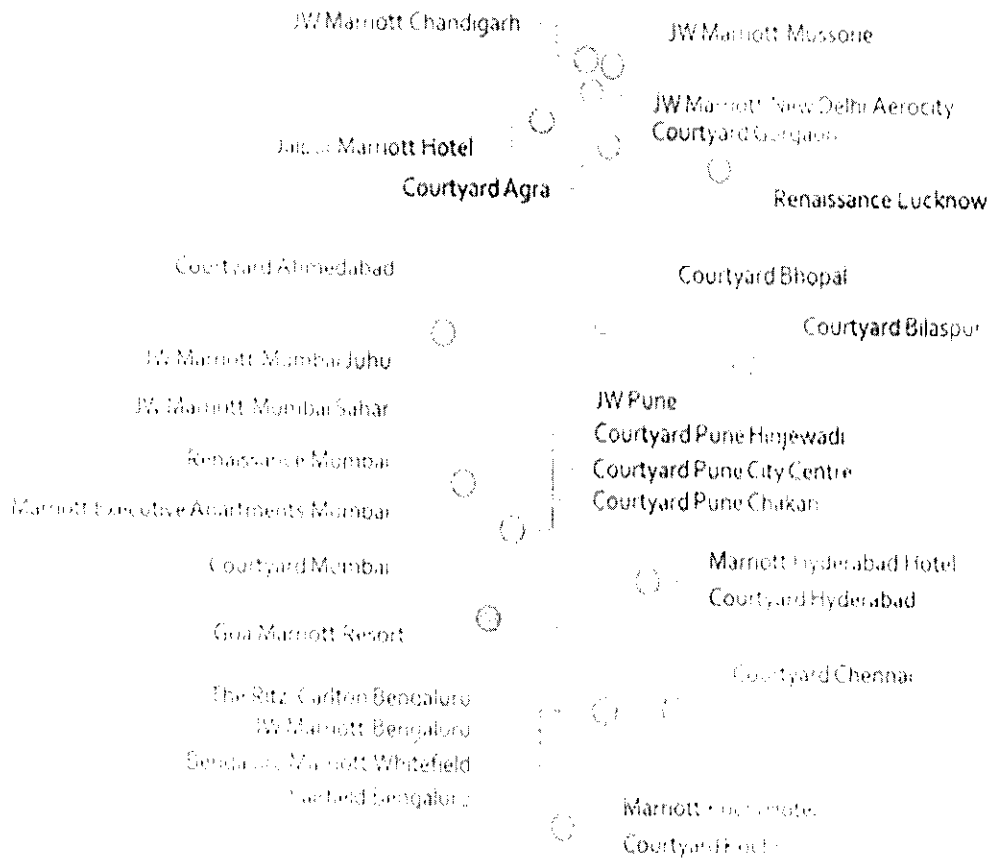 JW Marriott Chandigarh
JW Marriott Mussorie
JW Marriott New Delhi Aerocity
Courtyard Gurgaon
Jaipur Marriott Hotel
Courtyard Agra
Renaissance Lucknow
Courtyard Ahmedabad
Courtyard Bhopal
Courtyard Bilaspur
JW Marriott Mumbai Juhu
JW Marriott Mumbai Sahar
JW Pune
Courtyard Pune Hinjewadi
Renaissance Mumbai
Courtyard Pune City Centre
Marriott Executive Apartments Mumbai
Courtyard Pune Chakan
Courtyard Mumbai
Marriott Hyderabad Hotel
Courtyard Hyderabad
Goa Marriott Resort
Courtyard Chennai
The Ritz-Carlton Bengaluru
JW Marriott Bengaluru
Bengaluru Marriott Whitefield
Fairfield Bengaluru
Marriott
Courtyard